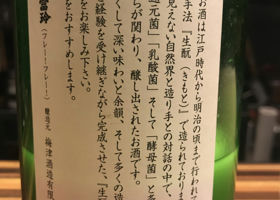 お酒は江戸時代から明治の頃まで行われ
手法『生酛(きもと)』で造られておりま
見えない自然界と造り手との対話の中で、
還元菌」「乳酸菌」そして「酵母菌」と多
らが関わり、醸し出されたお酒です。
くして深い味わいと余韻、そして多くの造
経験を受け継ぎながら完成させた、『生
をお楽しみ下さい。
をおすすめします。
冨玲(フレー!フレー!)
醸造元 梅津酒造有限